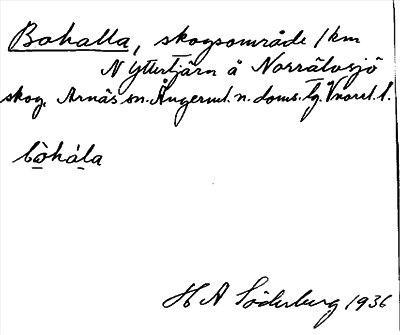 Bohalla, skogsområde 1 km
N Yttertjärn å Norrälvsjö
skog. Arnäs sn. Ångerml. n. doms. lg. Vnorrl. l.
bòhála
H A Söderberg 1936